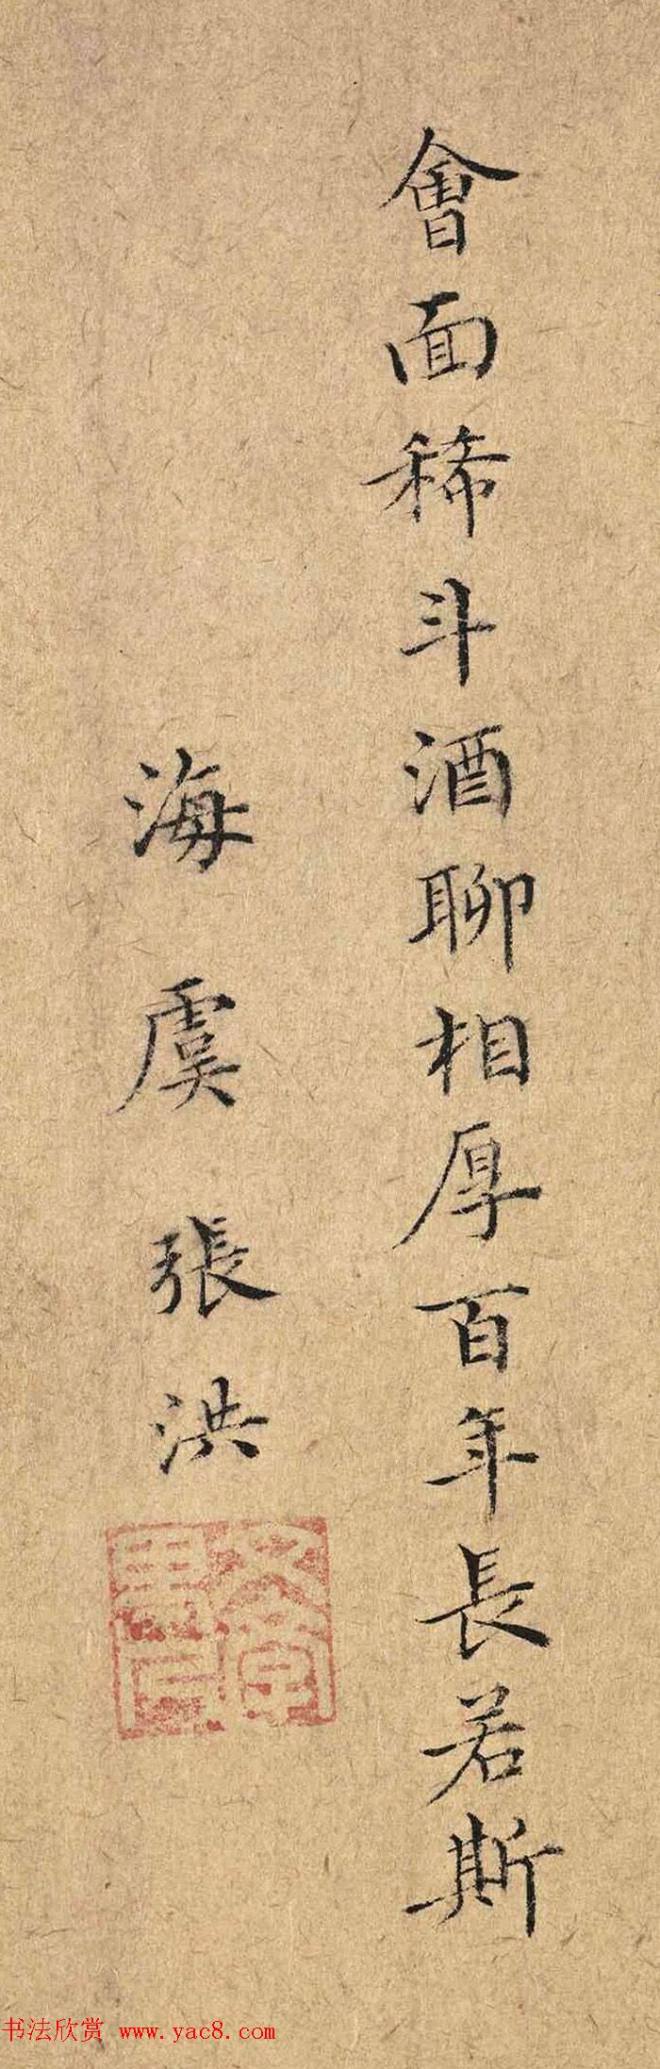 會面稀斗酒聊相厚百年長若斯
海虞張洪
书法欣赏 www.yac8.com